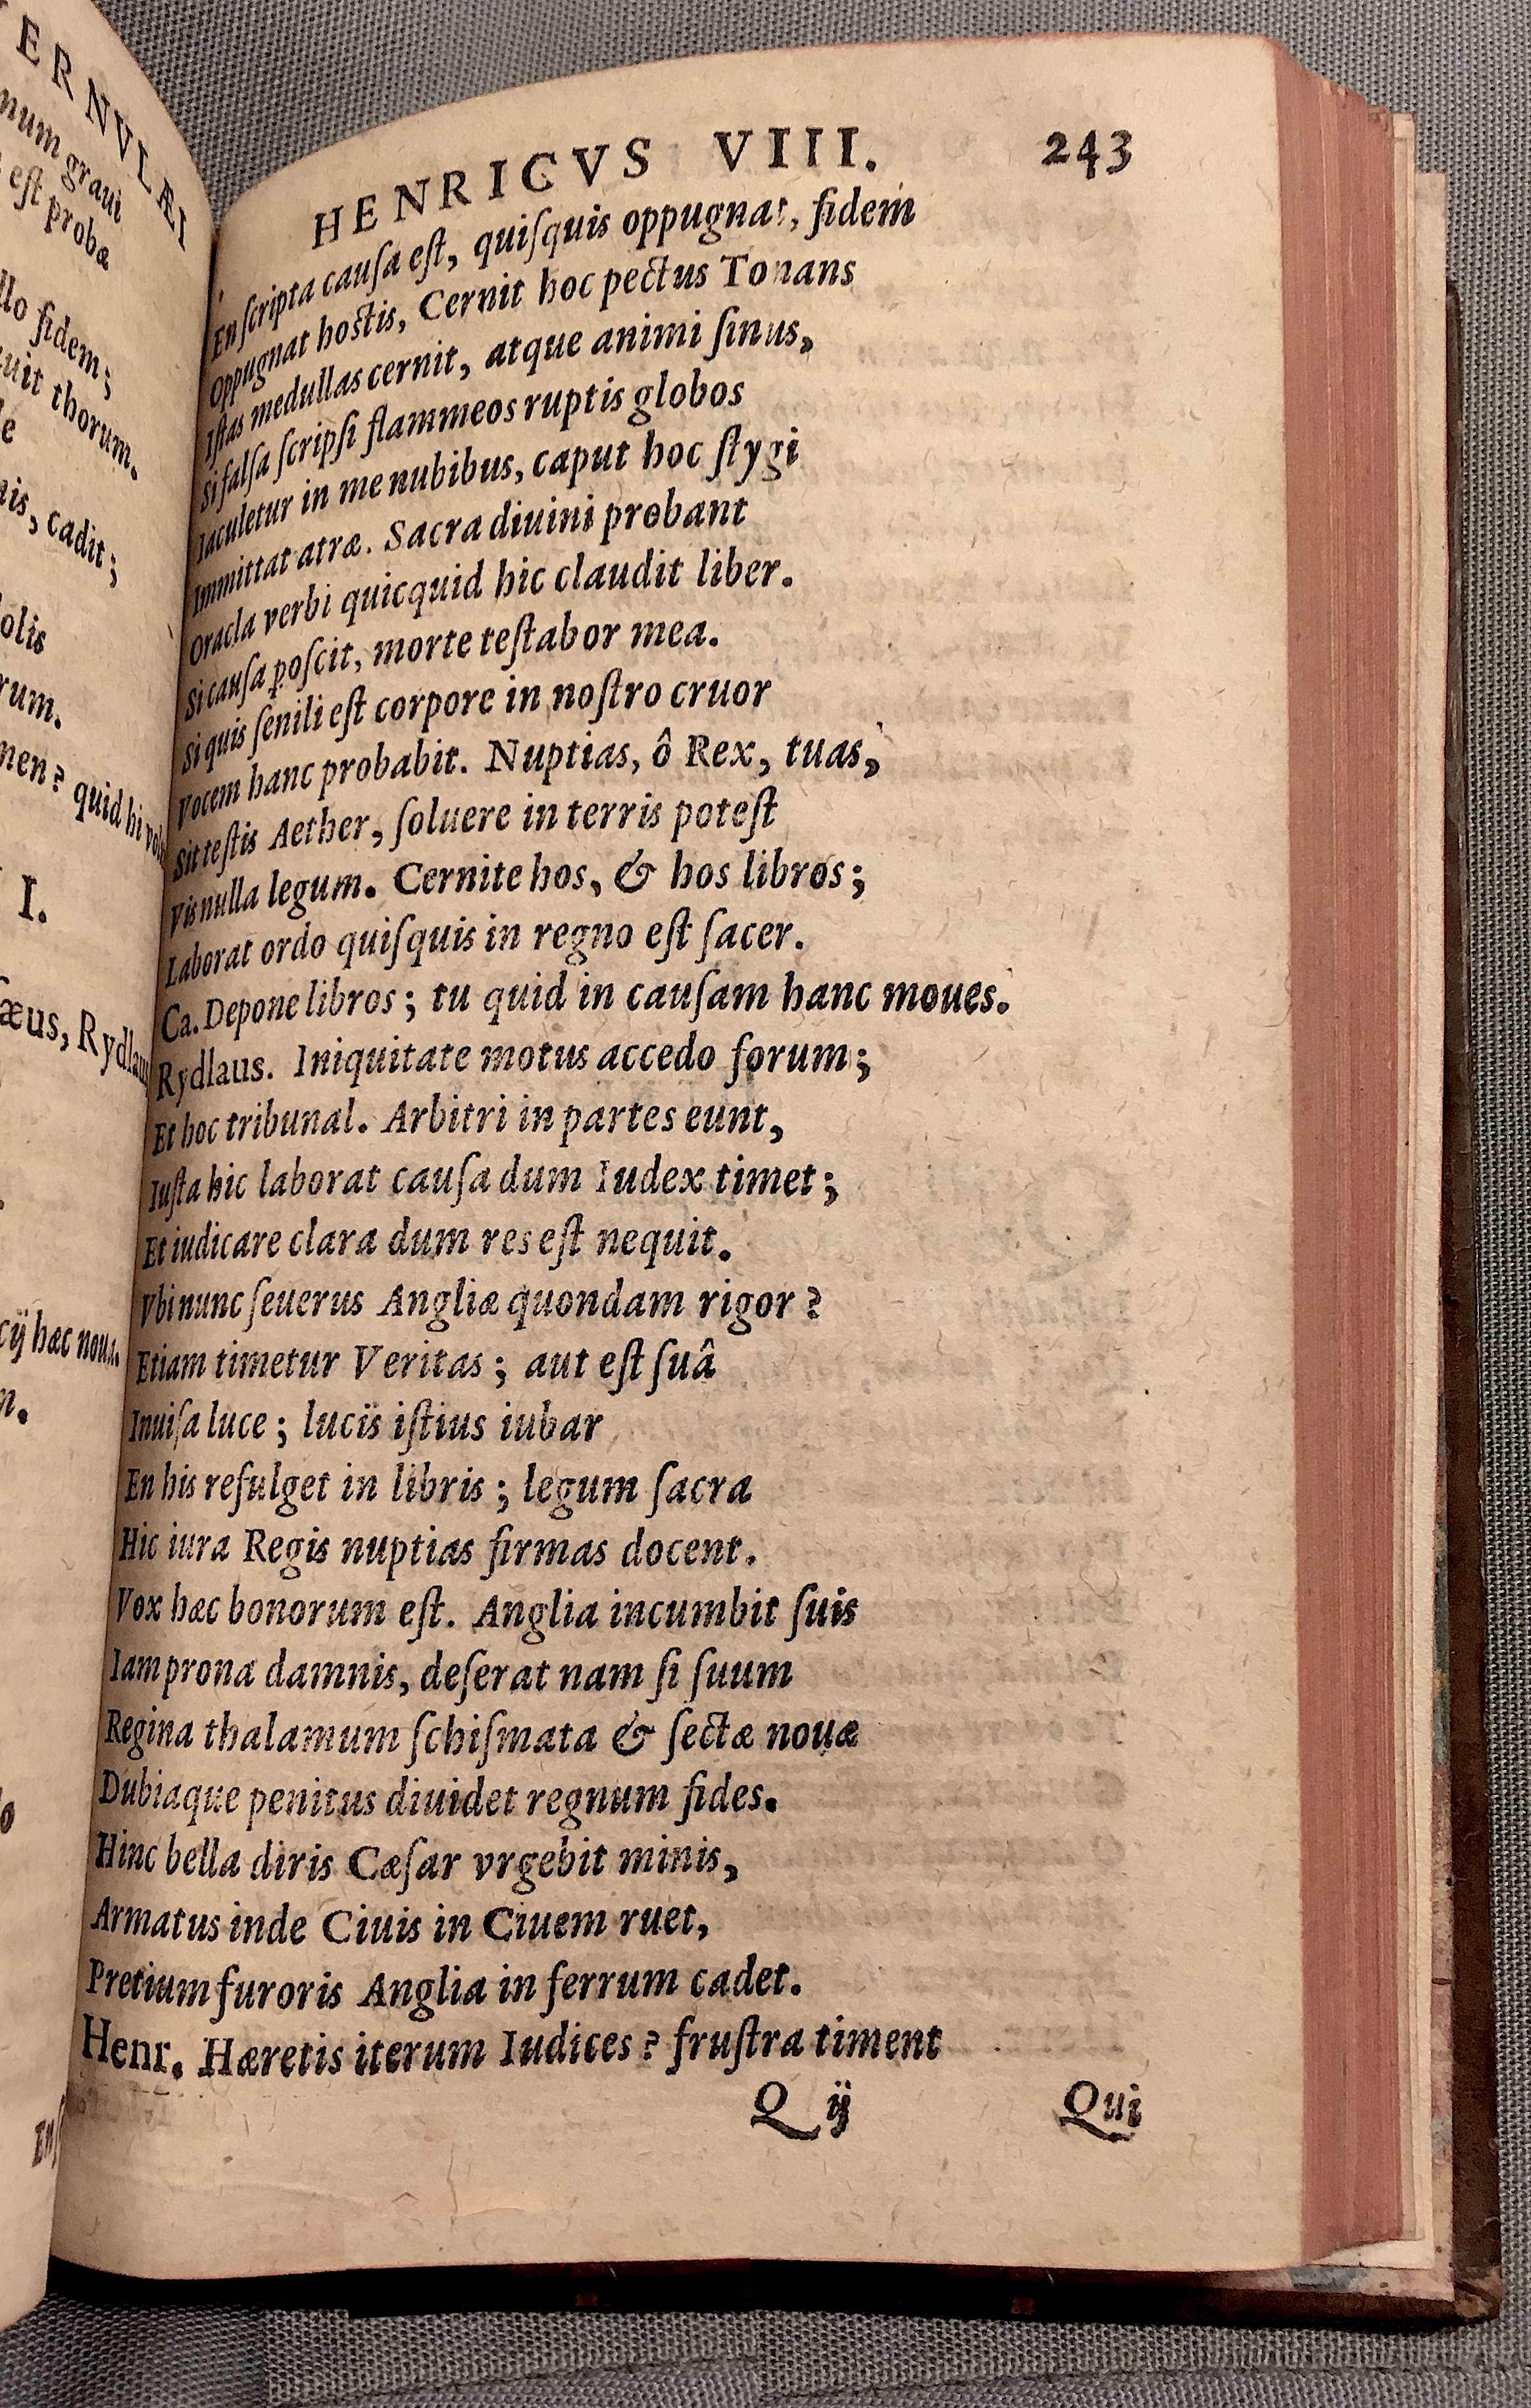 ERNVLÆI
num graui
est probæ
llo fidem;
uit thorum.
cadit;
olis
rum.
men? quid hi
I.
æus, Rydlaus
cÿ hæc noua.
HENRICVS VIII. 243
En ſcripta cauſa eſt, quiſquis oppugnat, fidem
Oppugnat hoſtis, Cernit hoc pectus Tonans
Iſtas medullas cernit, atque animi ſinus,
Si falſa ſcripſi flammeos ruptis globos
Iaculetur in me nubibus, caput hoc ſtygi
Immittat atræ. Sacra diuini probant
Oracla verbi quicquid hic claudit liber.
Si cauſa poſcit, morte teſtabor mea.
Si quis ſenili eſt corpore in noſtro cruor
Vocem hanc probabit. Nuptias, ô Rex, tuas,
Sit teſtis Aether, ſoluere in terris poteſt
Vis nulla legum. Cernite hos, & hos libros;
Laborat ordo quiſquis in regno eſt ſacer.
Ca. Depone libros; tu quid in cauſam hanc moues.
Rydlaus. Iniquitate motus accedo forum;
Et hoc tribunal. Arbitri in partes eunt,
Iuſta hic laborat cauſa dum Iudex timet;
Et iudicare clara dum res eſt nequit.
Vbi nunc ſeuerus Angliæ quondam rigor?
Etiam timetur Veritas; aut eſt ſuâ
Inuiſa luce; lucis iſtius iubar
En his refulget in libris; legum ſacra
Hic iura Regis nuptias firmas docent.
Vox hæc bonorum eſt. Anglia incumbit ſuis
Iam prona damnis, deſerat nam ſi ſuum
Regina thalamum ſchiſmata & ſectæ nouæ
Dubiaque penitus diuidet regnum fides.
Hinc bella diris Cæſar vrgebit minis,
Armatus inde Ciuis in Ciuem ruet,
Pretium furoris Anglia in ferrum cadet.
Henr. Hæretis iterum Iudices? fruſtra timent
Q ij Qui